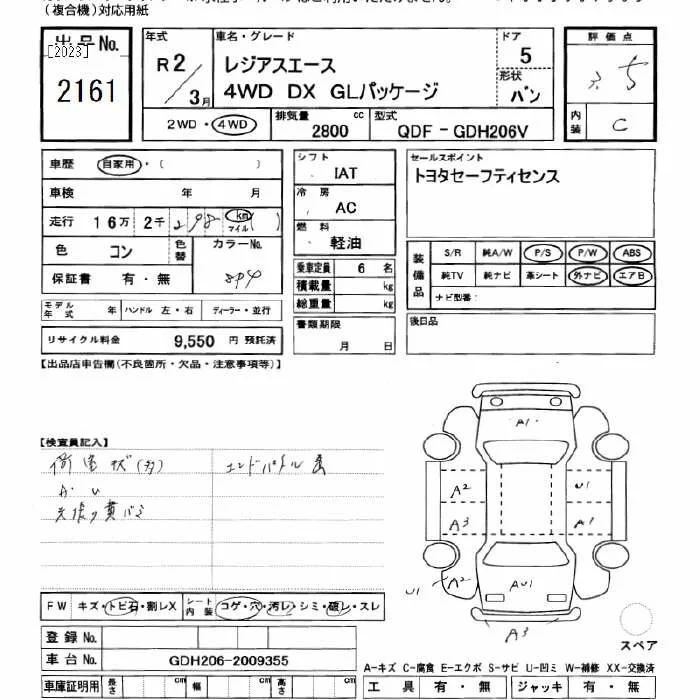 (複合機)対応用紙
出品No.
[2023]
2161
年式
R2/3月
車名・グレード
レジアスエース
4WD DX GLパッケージ
ドア
5
形状
バン
2WD・4WD
排気量
2800 cc
型式
QDF - GDH206V
評価点
3.5
内装
C
車歴 自家用・( )
車検 年 月
走行 16万 2千 298 km マイル ( )
色 コン 色替 カラーNo.
保証書 有・無 8P4
モデル年式 年 ハンドル 左・右 ディーラー・並行
リサイクル料金 9,550 円 預託済
シフト
IAT
冷房
AC
燃料
軽油
乗車定員 6 名
積載量 kg
総重量 kg
書類期限
月 日
セールスポイント
トヨタセーフティセンス
装備品
S/R 純A/W P/S P/W ABS
純TV 純ナビ 革シート 外ナビ エアB
ナビ型番:
後日品
【出品店申告欄(不良箇所・欠品・注意事項等)】
【検査員記入】
A1
A2 U1
A3 A1
U1 A2 AU1
A3
スペア
FW キズ・トビ石・割レX シート内装 コゲ・穴・汚レ・シミ・破レ・スレ
登録No.
車台No. GDH206-2009355
車庫証明用 長さ cm 幅 cm 高さ cm
A-キズ C-腐食 E-エクボ S-サビ U-凹ミ W-補修 XX-交換済
工具 有・無 ジャッキ 有・無